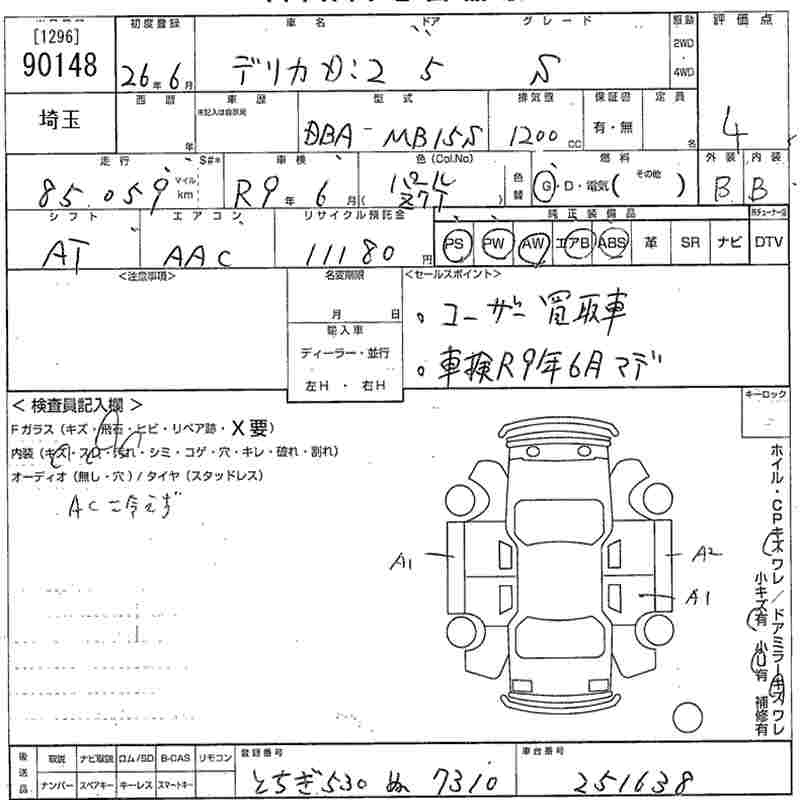 [1296]
90148
初度登録
26年6月
車名
デリカD:2
ドア
5
グレード
S
駆動
2WD
・
4WD
評価点
4
埼玉
西暦
年
車歴
未記入は自家用
型式
DBA-MB15S
排気量
1200cc
保証書
有・無
定員
名
走行
85,059
マイル
km
S#*
車検
R9年6月
色(Col.No)
パール
Z7T
色替
燃料
G・D・電気( その他 )
外装
B
内装
B
シフト
AT
エアコン
AAC
リサイクル預託金
11180円
純正装備品
PS PW AW エアB ABS 革 SR ナビ
DTV
<注意事項>
名変期限
月 日
輸入車
ディーラー・並行
左H・右H
<セールスポイント>
。ユーザー買取車
。車検R9年6月マデ
キーロック
< 検査員記入欄 >
Fガラス(キズ・飛石・ヒビ・リペア跡・X要)
内装(キズ・スレ・汚れ・シミ・コゲ・穴・キレ・破れ・割れ)
オーディオ(無し・穴)/タイヤ(スタッドレス)
AC
冷えず
A1
A2
A1
ホイル・CPキズワレ/ドアミラーキズワレ
小キズ有 小U有 補修有
後送品
取説 ナビ取説 ロム/SD B-CAS リモコン
ナンバー スペアキー キーレス スマートキー
登録番号
とちぎ530 ぬ 7310
車台番号
251638